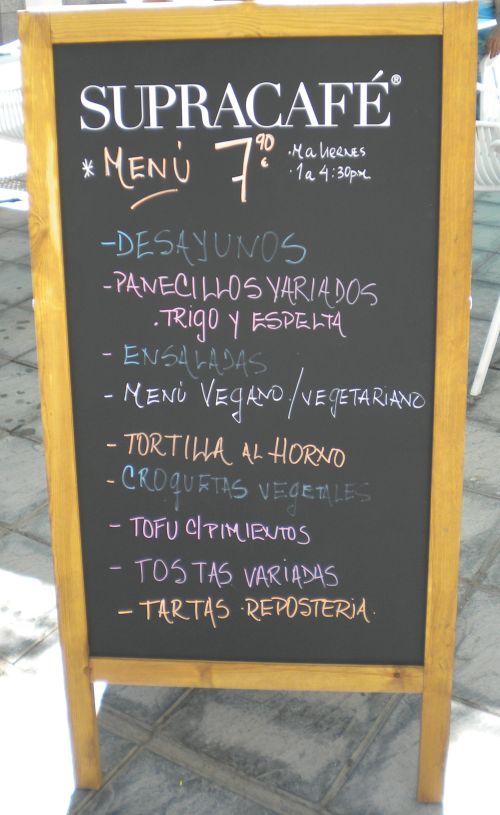 SUPRACAFÉ®
* MENÚ 7'90 €
·M a VIERNES
·1 a 4:30pm
-DESAYUNOS
-PANECILLOS VARIADOS
.TRIGO Y ESPELTA
- ENSALADAS
- MENÚ VEGANO/VEGETARIANO
- TORTILLA AL HORNO
- CROQUETAS VEGETALES
- TOFU C/PIMIENTOS
- TOSTAS VARIADAS
- TARTAS·REPOSTERIA.